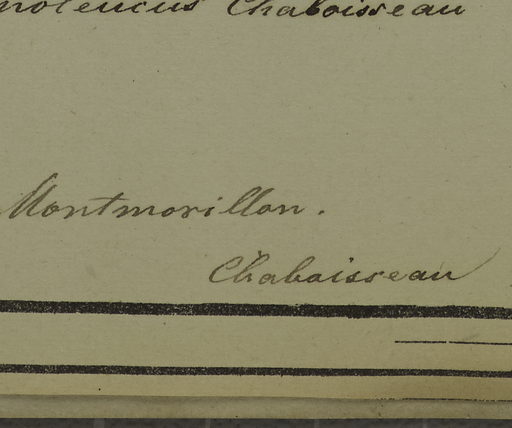 Chaboisseau
Montmorillon.
Chaboisseau